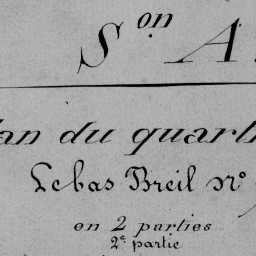 Son A
an du quart
Le bas Breil n°
en 2 parties
2e partie